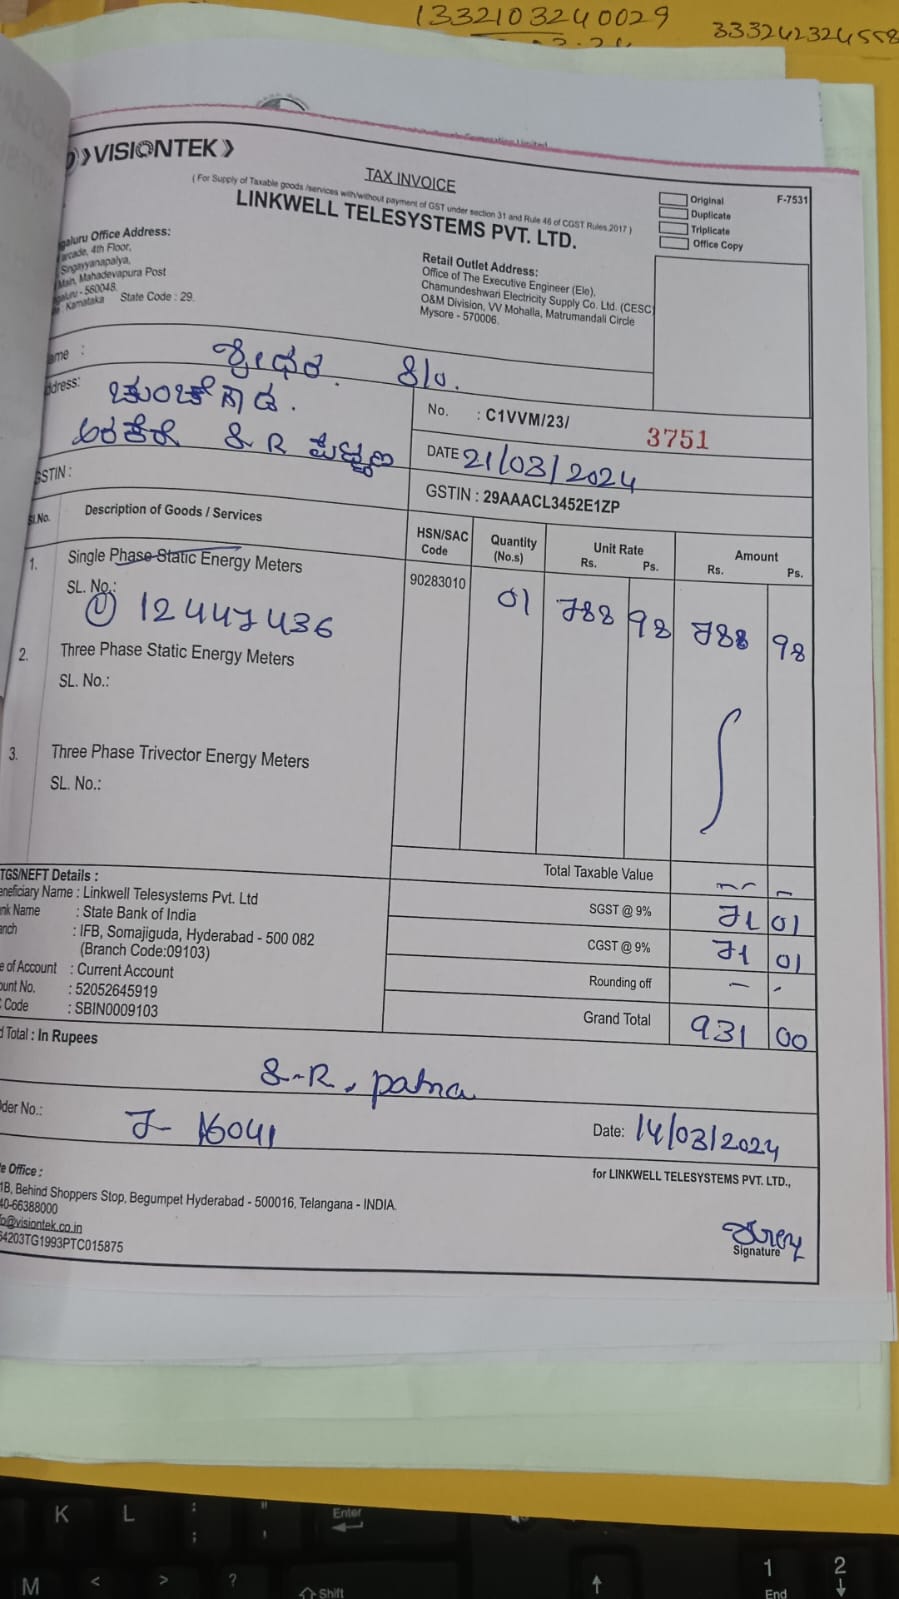 1332103240029
3332423244558
VISIONTEK
TAX INVOICE
( For Supply of Taxable goods /services with/without payment of GST under section 31 and Rule 46 of CGST Rules 2017 )
LINKWELL TELESYSTEMS PVT. LTD.
Original
Duplicate
Triplicate
Office Copy
F-7531
galuru Office Address:
arcade, 4th Floor,
Singayyanapalya,
Main, Mahadevapura Post
galuru - 560048.
Karnataka State Code : 29.
Retail Outlet Address:
Office of The Executive Engineer (Ele),
Chamundeshwari Electricity Supply Co. Ltd. (CESC)
O&M Division, VV Mohalla, Matrumandali Circle
Mysore - 570006.
ame : ಶ್ರೀಧರ. S/o.
ddress:
ಅರಕೆರೆ S.R ಪಟ್ಟಣ
No. : C1VVM/23/ 3751
DATE 21/03/2024
GSTIN :
GSTIN : 29AAACL3452E1ZP
Sl.No. Description of Goods / Services HSN/SAC Code Quantity (No.s) Unit Rate Rs. Ps. Amount Rs. Ps.
1. Single Phase Static Energy Meters 90283010 01 788 98 788 98
SL. No.:
① 12447436
2. Three Phase Static Energy Meters
SL. No.:
3. Three Phase Trivector Energy Meters
SL. No.:
Total Taxable Value
SGST @ 9% 71 01
CGST @ 9% 71 01
Rounding off
Grand Total 931 00
TGS/NEFT Details :
eneficiary Name : Linkwell Telesystems Pvt. Ltd
nk Name : State Bank of India
anch : IFB, Somajiguda, Hyderabad - 500 082
(Branch Code:09103)
e of Account : Current Account
ount No. : 52052645919
Code : SBIN0009103
d Total : In Rupees
S-R. patna
der No.: J- 16041
Date: 14/03/2024
for LINKWELL TELESYSTEMS PVT. LTD.,
e Office :
1B, Behind Shoppers Stop, Begumpet Hyderabad - 500016, Telangana - INDIA.
40-66388000
fo@visiontek.co.in
64203TG1993PTC015875
Signature
K L : ; " ' Enter
M < > ? Shift 1 End 2